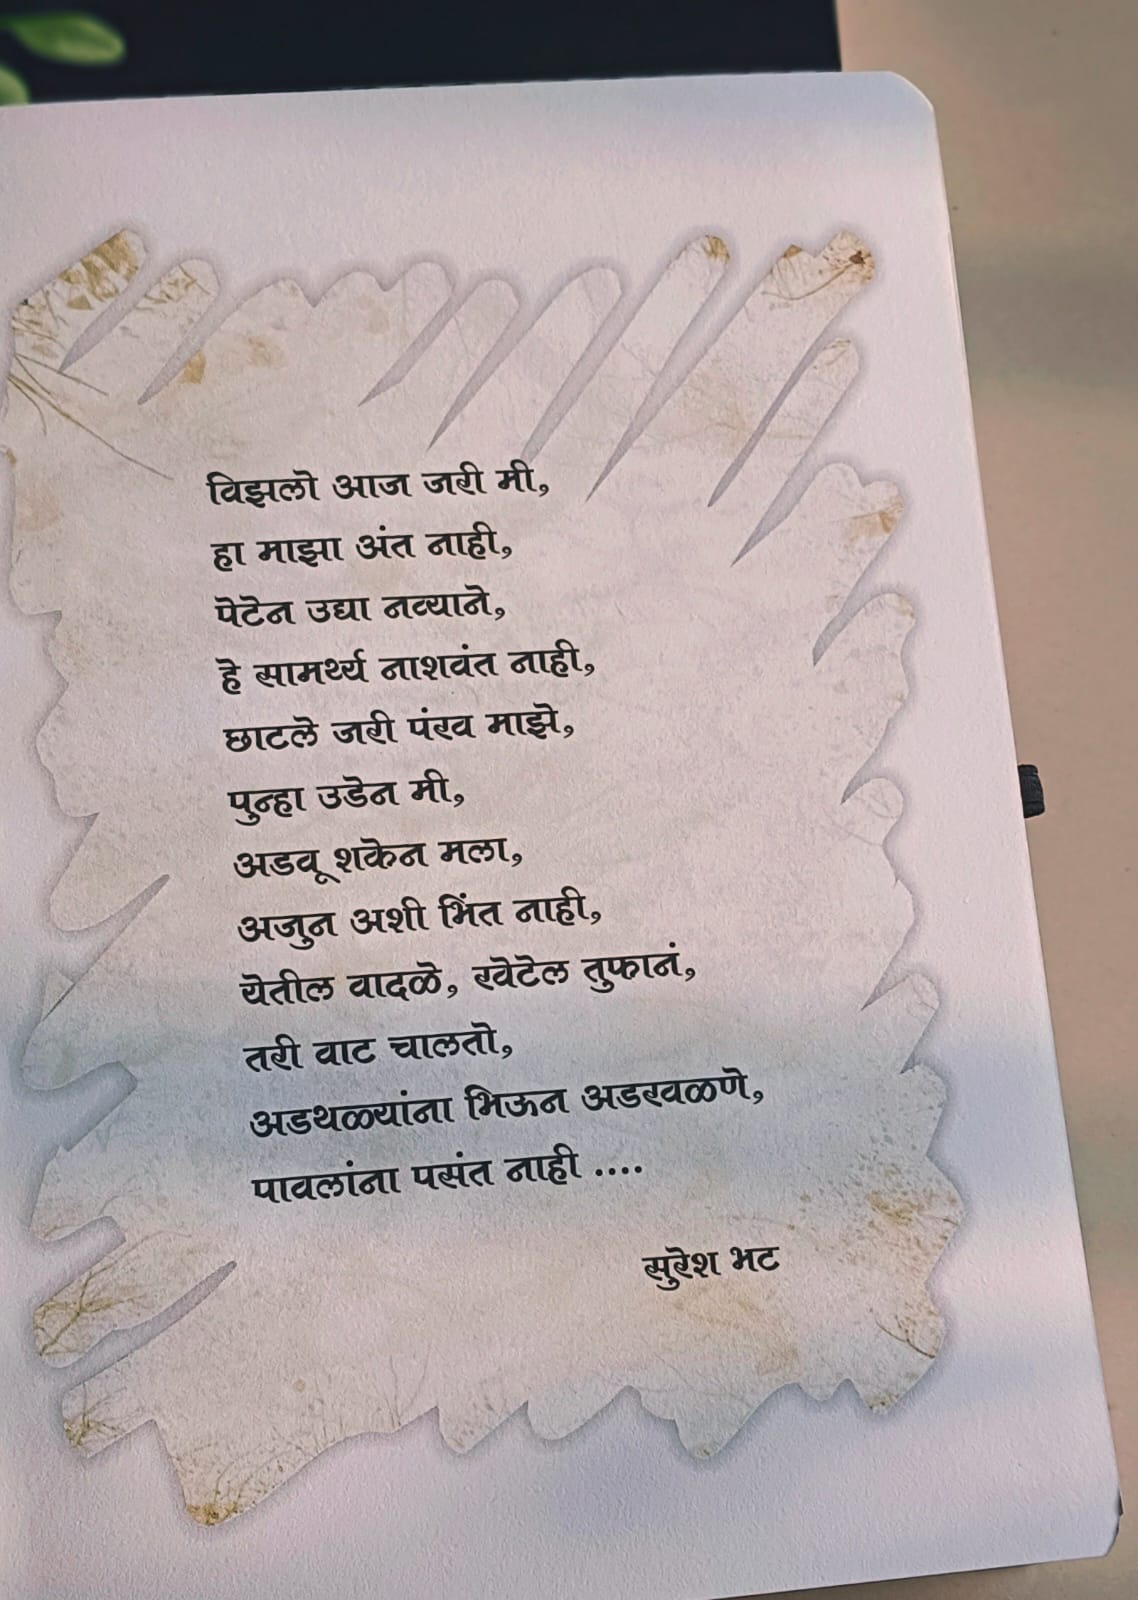 विझलो आज जरी मी,
हा माझा अंत नाही,
पेटेन उद्या नव्याने,
हे सामर्थ्य नाशवंत नाही,
छाटले जरी पंख माझे,
पुन्हा उडेन मी,
अडवू शकेन मला,
अजुन अशी भिंत नाही,
येतील वादळे, खेटेल तुफानं,
तरी वाट चालतो,
अडथळ्यांना भिऊन अडखळणे,
पावलांना पसंत नाही ....
सुरेश भट